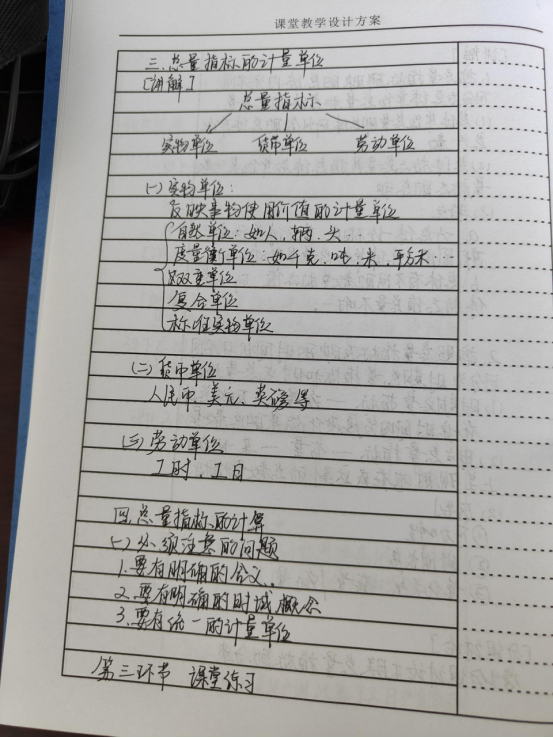 课堂教学设计方案
三.总量指标的计量单位
[讲解]
总量指标
实物单位 货币单位 劳动单位
(一)实物单位:
反映事物使用价值的计量单位
自然单位:如人、辆、头
度量衡单位:如千克、吨、米、平方米…
双重单位
复合单位
标准实物单位
(二)货币单位
人民币、美元、英镑等
(三)劳动单位
工时、工日
四.总量指标的计算
(一)必须注意的问题
1.要有明确的含义.
2.要有明确的时减概念
3.要有统一的计量单位
第三环节 课堂练习